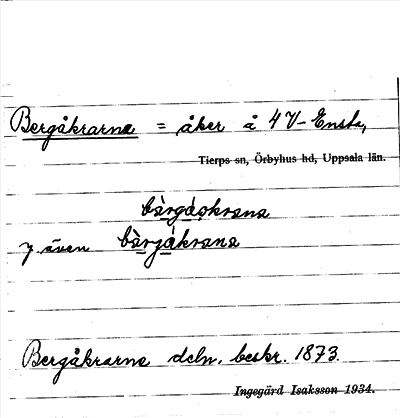 Bergåkrarna = åker å 4 V-Ensta,
Tierps sn, Örbyhus hd, Uppsala län.
bàrgáokrana
även bàrjákrana
Bergåkrarne deln. beskr. 1873.
Ingegärd Isaksson 1934.